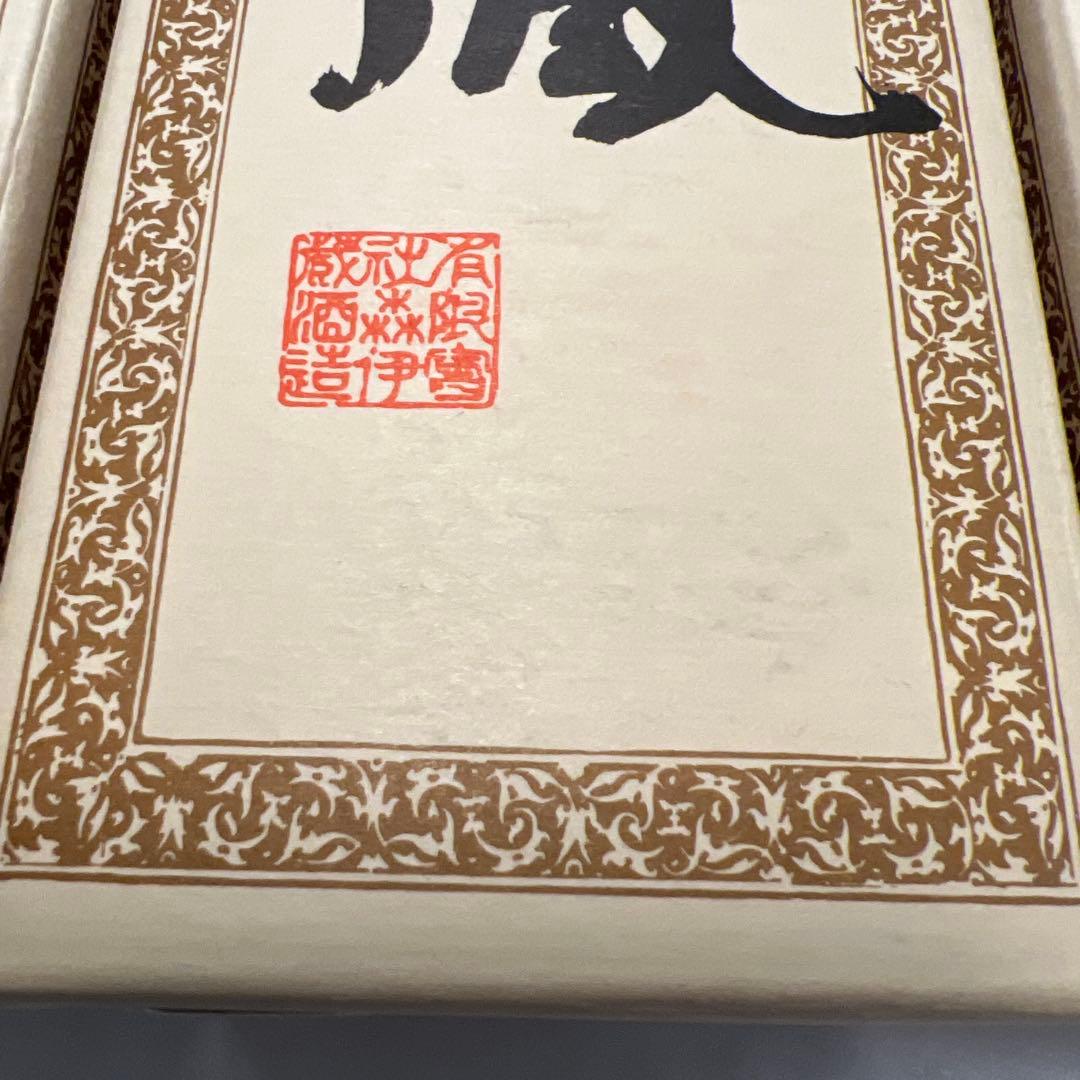 有限會
社森伊
蔵酒造